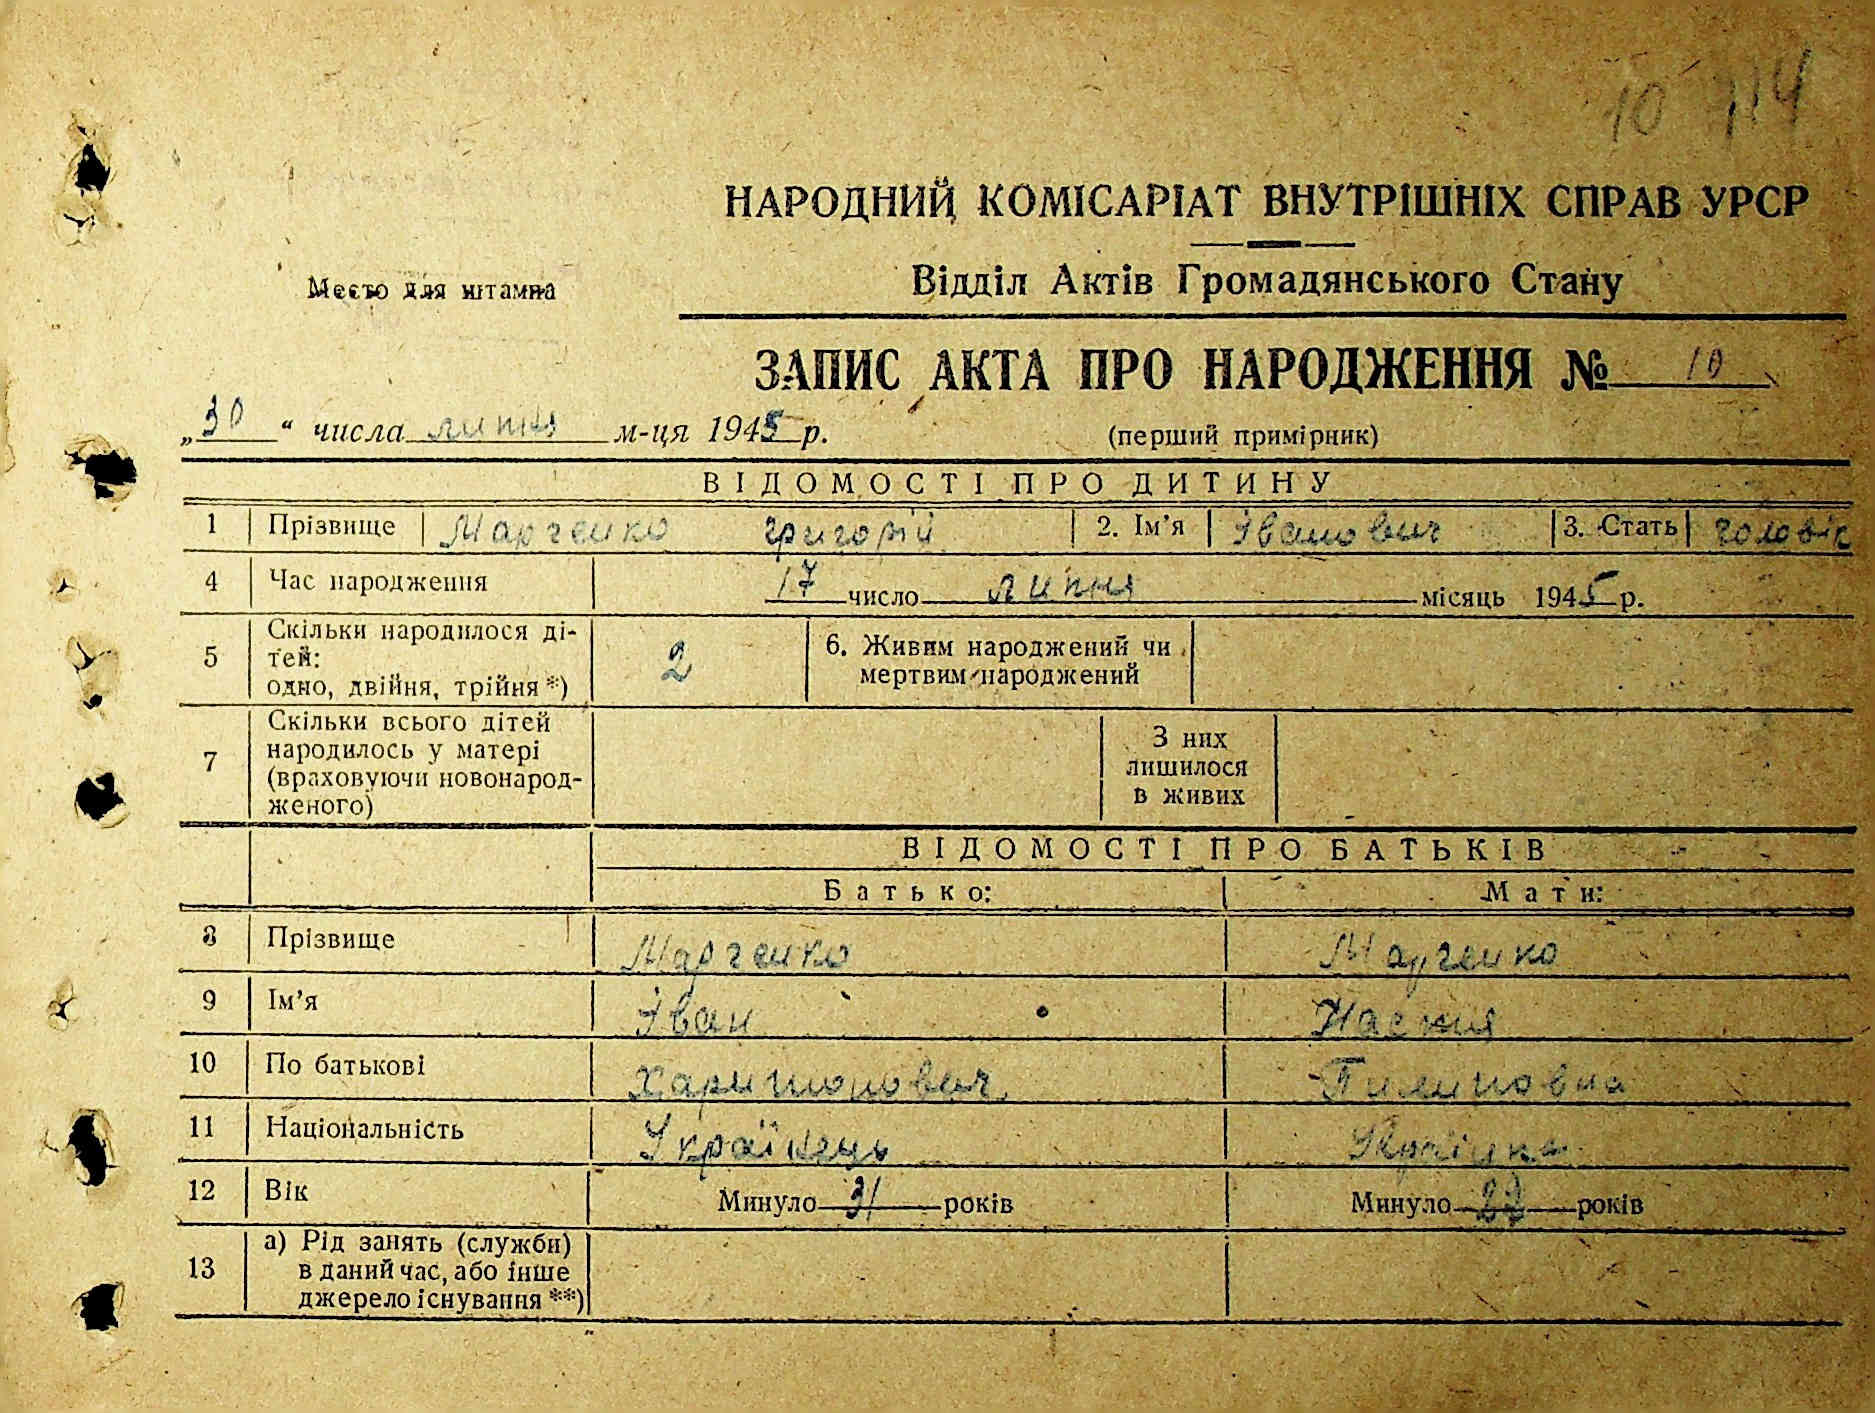 10 114
НАРОДНИЙ КОМІСАРІАТ ВНУТРІШНІХ СПРАВ УРСР
Место для штампа
Відділ Актів Громадянського Стану
ЗАПИС АКТА ПРО НАРОДЖЕННЯ № 10
„30“ числа липня м-ця 1945 р.
(перший примірник)
ВІДОМОСТІ ПРО ДИТИНУ
1 Прізвище Марченко григорій 2. Ім’я Іванович 3. Стать чоловік
4 Час народження 17 число липня місяць 1945 р.
5 Скільки народилося ді-
тей:
одно, двійня, трійня *) 2 6. Живим народжений чи
мертвим народжений
7 Скільки всього дітей
народилось у матері
(враховуючи новонарод-
женого)
З них
лишилося
в живих
ВІДОМОСТІ ПРО БАТЬКІВ
Батько: Мати:
8 Прізвище Марченко Марченко
9 Ім’я Іван Настя
10 По батькові Харитонович Пилиповна
11 Національність Українець Українка
12 Вік Минуло 31 років Минуло років
13 а) Рід занять (служби)
в даний час, або інше
джерело існування **)